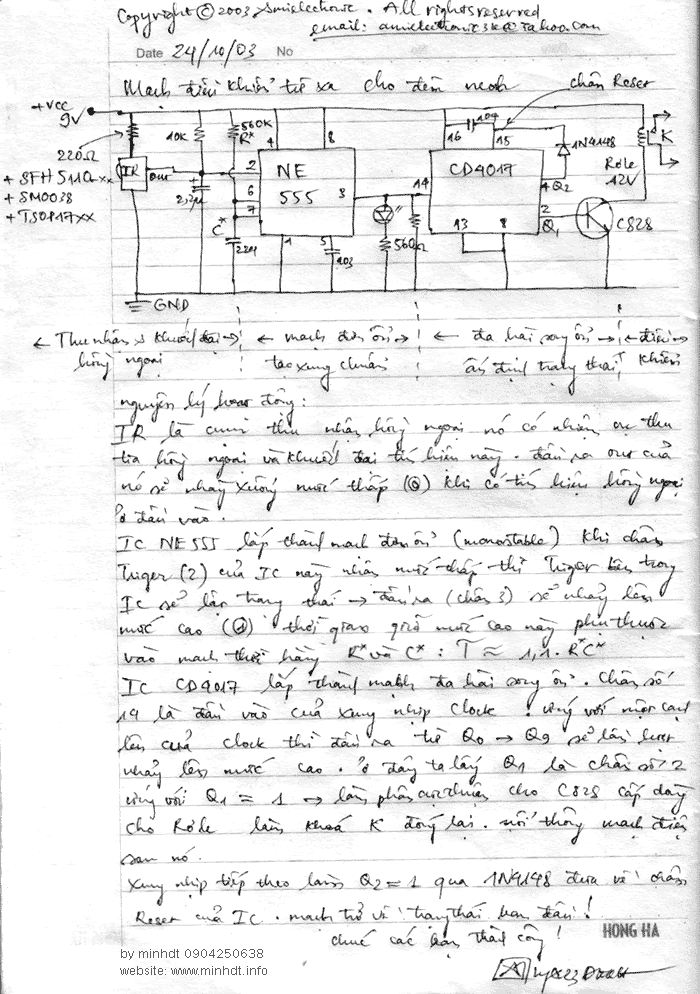 Copyright © 2003 . All rights reserved
email:
Date 24/10/03 No
Mạch điều khiển từ xa cho đèn neon
chân Reset
+Vcc
9V
220Ω
IR
out
+ SFH 5110-xx
+ SM0038
+ TSOP17xx
10K
560K
R*
2,2µ
C*
22µ
4
8
2
6
7
NE
555
3
1
5
103
560Ω
14
16
104
15
CD4017
13
8
1N4148
4 Q2
2
Q1
Rơle
12V
K
C828
GND
← Thu nhận & khuếch đại → ← mạch đơn ổn → ← đa hài song ổn → ← điều
hồng ngoại tạo xung chuẩn ổn định trạng thái khiển
nguyên lý hoạt động:
IR là thu nhận hồng ngoại nó có nhiệm vụ thu
tia hồng ngoại và khuếch đại tín hiệu này. đầu ra out của
nó sẽ nhảy xuống mức thấp (0) khi có tín hiệu hồng ngoại
ở đầu vào.
IC NE555 lắp thành mạch đơn ổn (monostable) khi chân
Triger (2) của IC này nhận mức thấp thì Triger bên trong
IC sẽ lập trạng thái → đầu ra (chân 3) sẽ nhảy lên
mức cao (1) thời gian giữ mức cao này phụ thuộc
vào mạch thời hằng R* và C* : T ≈ 1,1. R*C*
IC CD4017 lắp thành mạch đa hài song ổn. Chân số
14 là đầu vào của xung nhịp Clock. ứng với một cạnh
lên của clock thì đầu ra từ Q0 → Q9 sẽ lần lượt
nhảy lên mức cao. ở đây ta lấy Q1 là chân số 2
ứng với Q1 = 1 → làm phân cực thuận cho C828 cấp dòng
cho Rơle làm khoá K đóng lại. nối thông mạch điện
sau nó.
Xung nhịp tiếp theo làm Q2 = 1 qua 1N4148 đưa về chân
Reset của IC. mạch trở về trạng thái ban đầu!
chúc các bạn thành công!
HONG HA
by minhdt 0904250638
website: www.minhdt.info